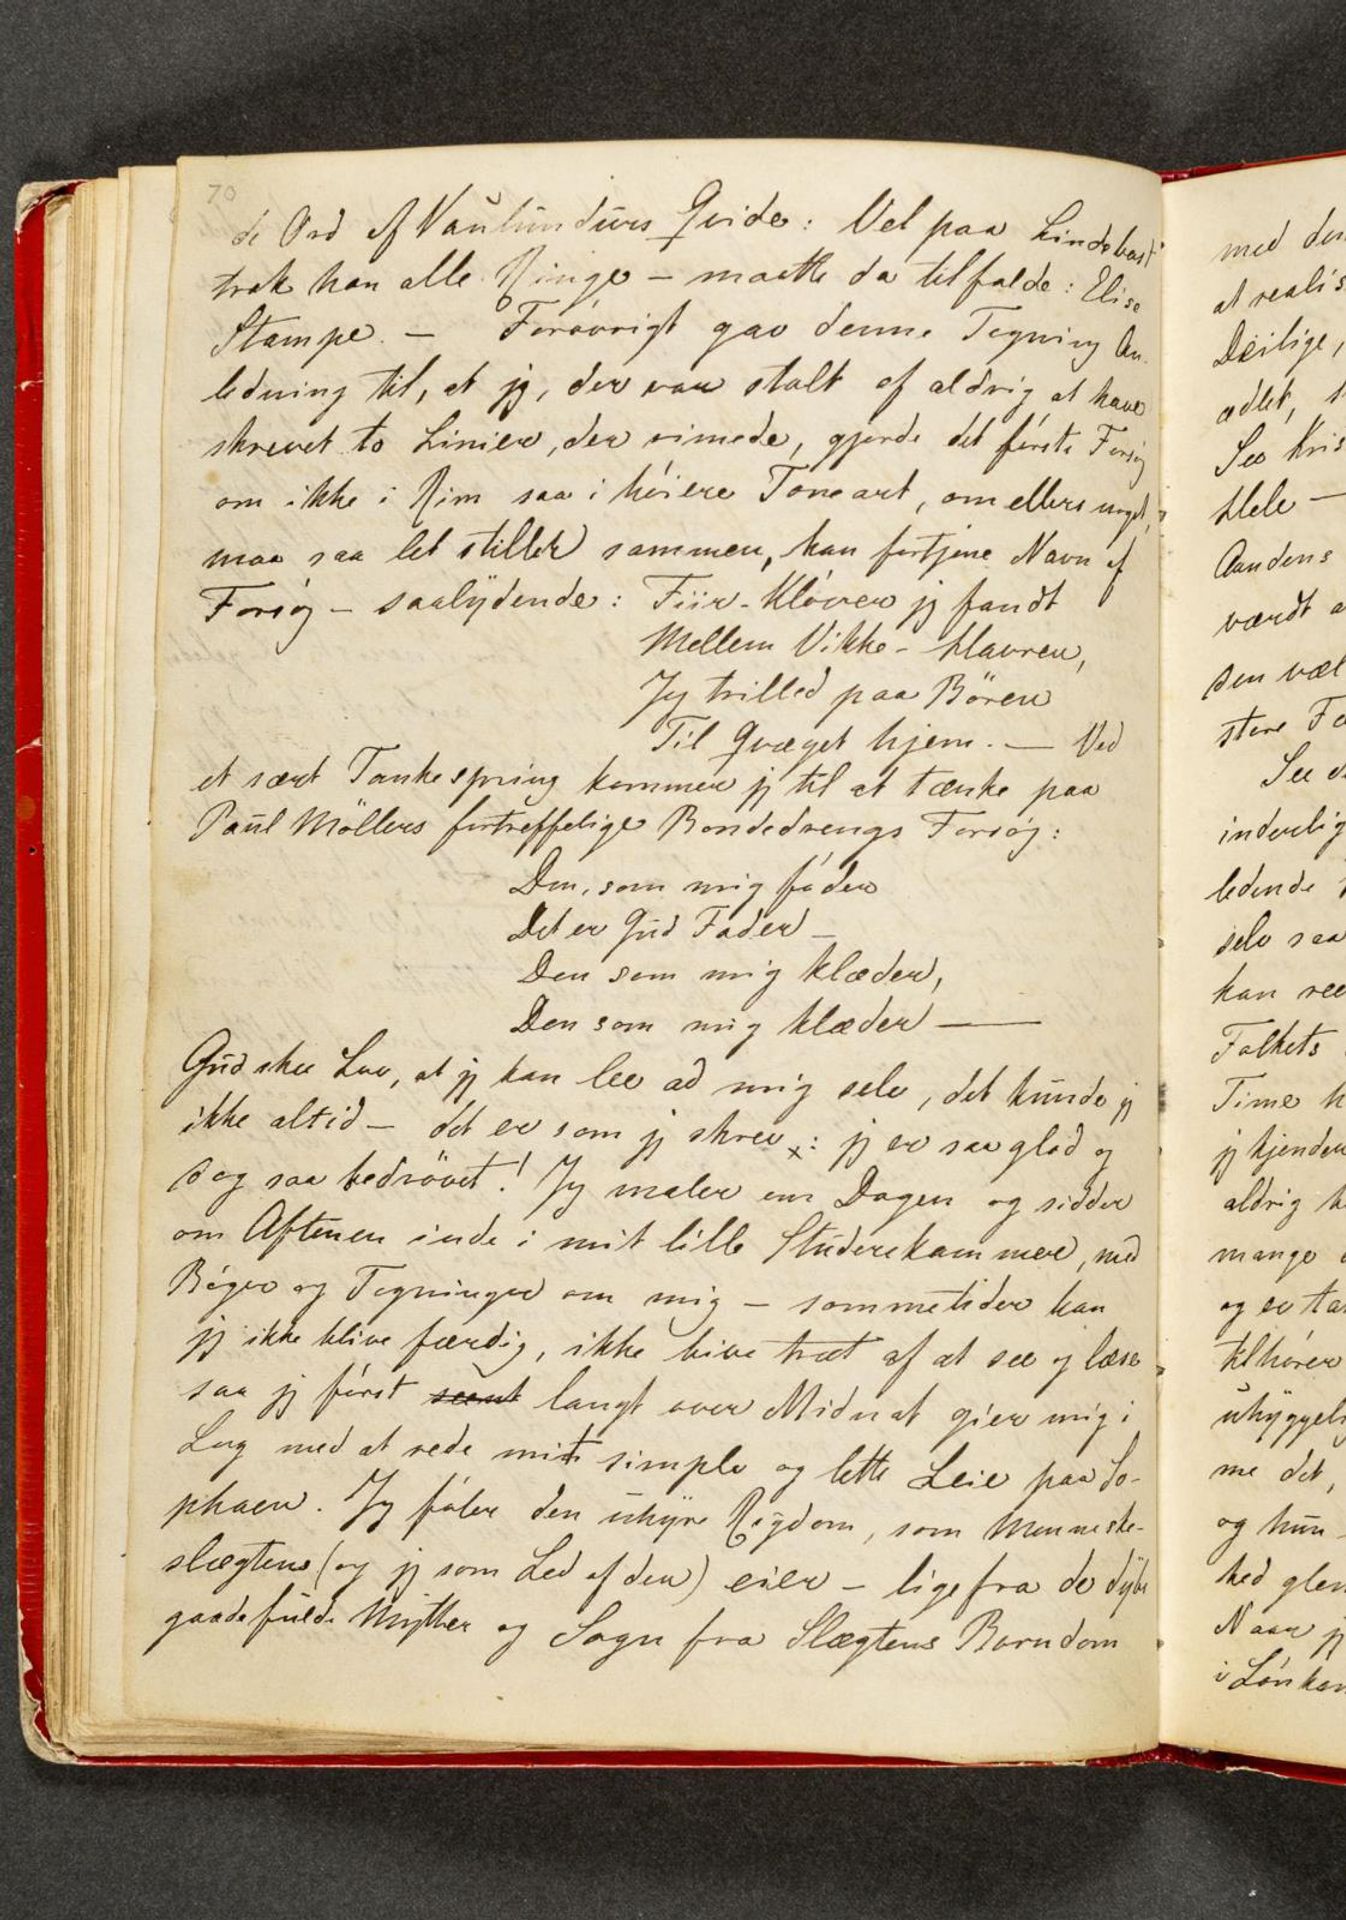 70
de Ord af Vaulundurs Qvide: Vel paa Lindebast
trak han alle Ringe – maatte da tilfalde: Elise
Stampe. – Forøvrigt gav denne Tegning An-
ledning til, at jeg, der var stolt af aldrig at have
skrevet to Linier, der rimede, gjorde det første Forsøg
om ikke i Rim saa i høiere Toneart, om ellers noget,
maa saa let stillet sammen, kan fortjene Navn af
Forsøg – saalÿdende: Fiir-Kløver jeg fandt
Mellem Vikke-Havren,
Jeg trilled paa Bören
Til Qvæget hjem. — Ved
et sært Tankespring kommer jeg til at tænke paa
Paul Möllers fortreffelige Bondedrengs Forsøg:
Den, som mig føder
Det er Gud Fader –
Den som mig klæder,
Den som mig klæder —
Gud skee Lov, at jeg kan lee ad mig selv, det kunde jeg
ikke altid – det er som jeg skrev x: jeg er saa glad og
dog saa bedrövet! Jeg maler om Dagen og sidder
om Aftenen inde i mit lille Studerekammer, med
Bøger og Tegninger om mig – sommetider kan
jeg ikke blive færdig, ikke blive træt af at see og læse
saa jeg først seent langt over Midnat gier mig i
Lag med at rede mit simple og lette Leie paa So-
phaen. Jeg føler den uhÿre Rigdom, som Menneske-
slægtens (og jeg som Led af den) eier – lige fra de dÿbe
gaadefulde Mÿther og Sagn fra Slægtens Barndom
med den
at realis
Deilige,
ædlet, s
See Kris
Hele —
Aandens
værdt a
den væl
store Fo
See d
inderlig
ledende
selv saa
kan see
Folkets
Time h
jeg kjender
aldrig h
mange
og er ta
tilhører
uhÿggeli
me det,
og hun
hed glem
Naar jeg
i Lönkam